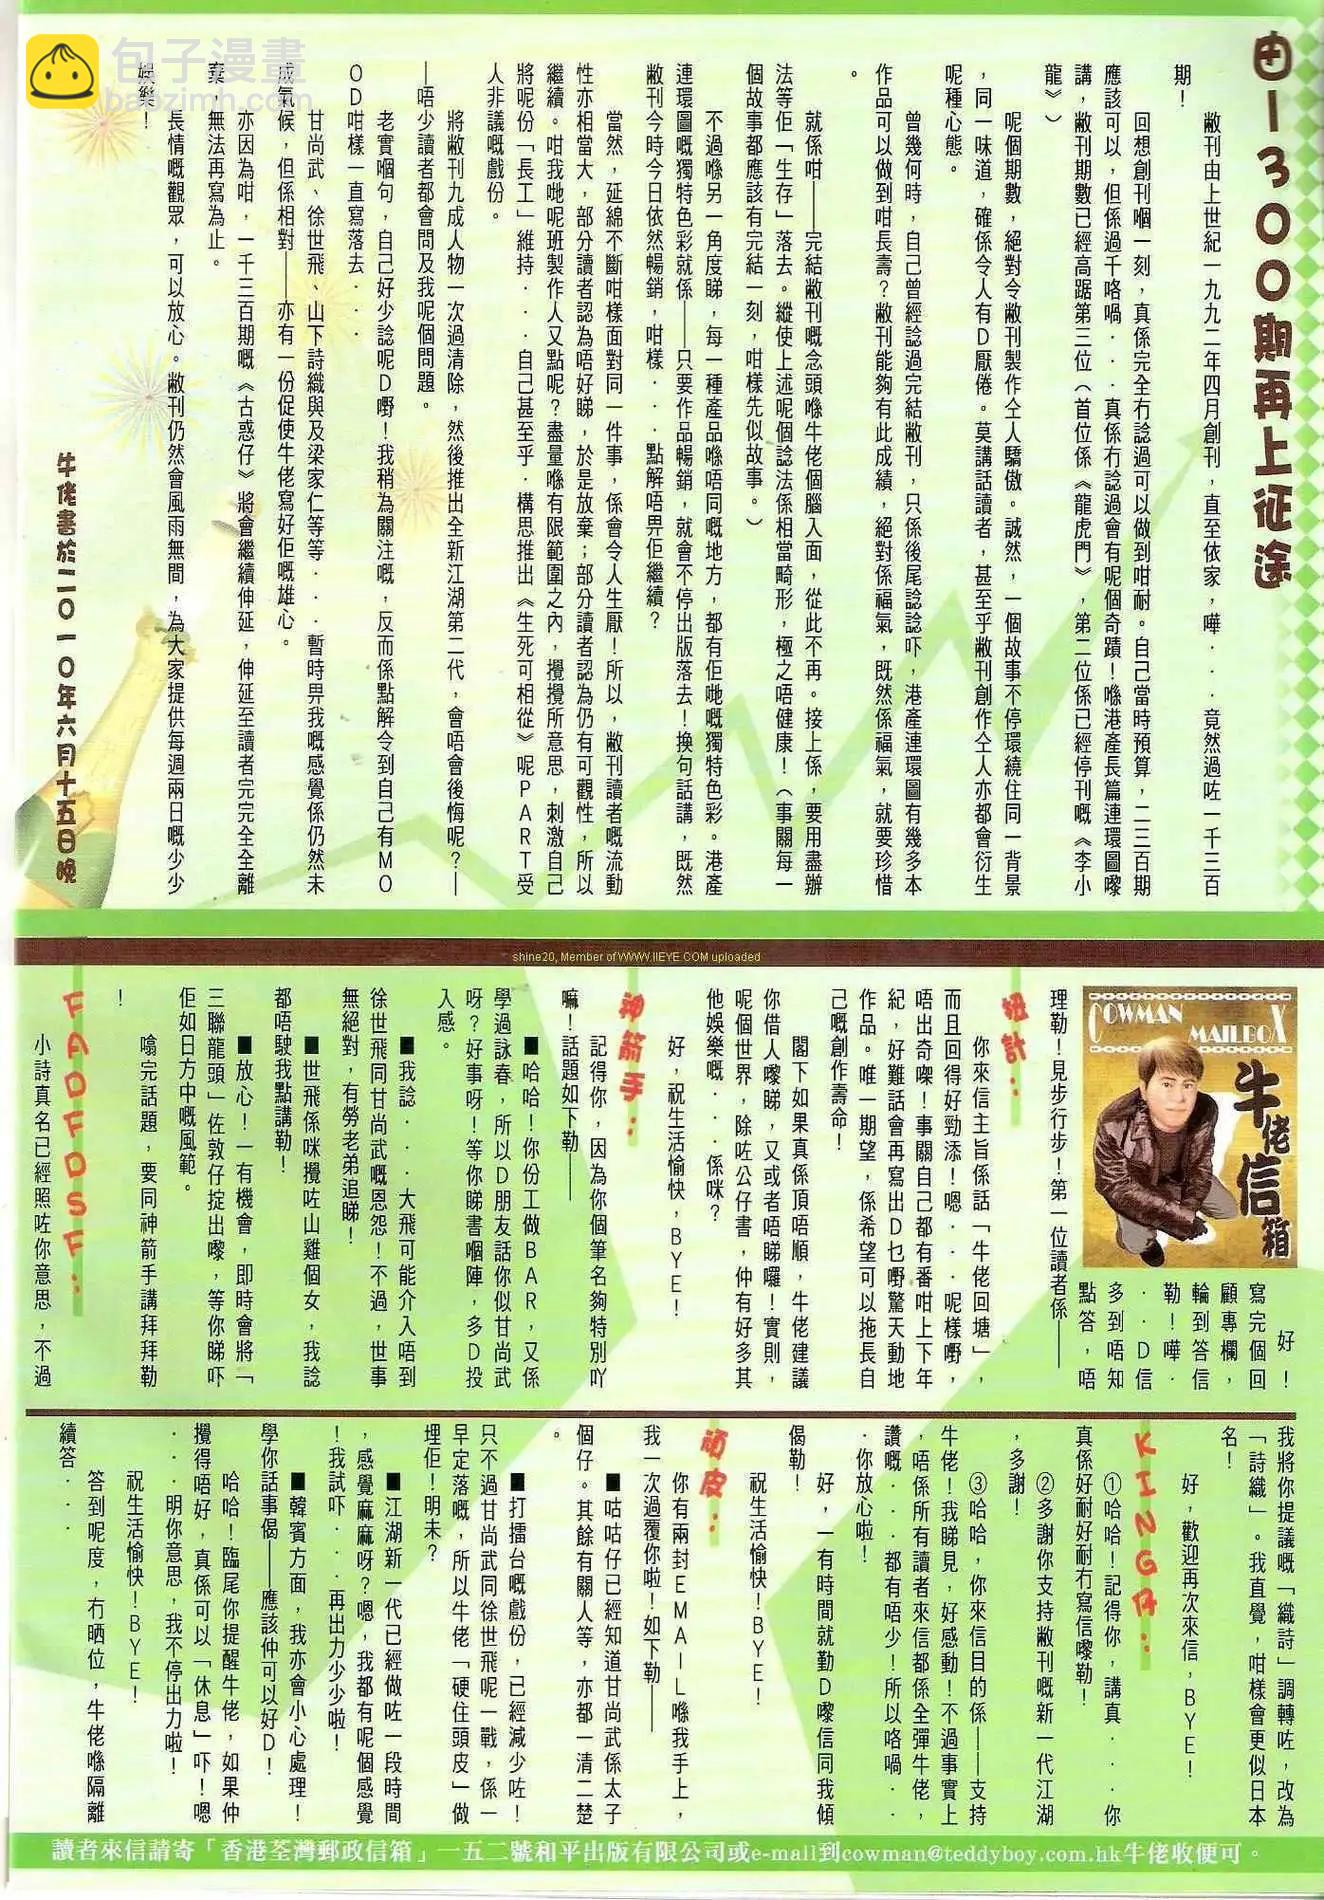 由1-1300期再上征途
敝刊由上世紀一九九二年四月創刊，直至依家，嘩．．．竟然過咗一千三百
期！
回想創刊嗰一刻，真係完全冇諗過可以做到咁耐。自己當時預算，二三百期
應該可以，但係過千咯喎．．．真係冇諗過會有呢個奇蹟！喺港產長篇連環圖嚟
講，敝刊期數已經高踞第三位（首位係《龍虎門》，第二位係已經停刊嘅《李小
龍》）
呢個期數，絕對令敝刊製作仝人驕傲。誠然，一個故事不停環繞住同一背景
，同一味道，確係令人有D厭倦。莫講話讀者，甚至乎敝刊創作仝人亦都會衍生
呢種心態。
曾幾何時，自己曾經諗過完結敝刊，只係後尾諗諗吓，港產連環圖有幾多本
作品可以做到咁長壽？敝刊能夠有此成績，絕對係福氣，既然係福氣，就要珍惜
。
就係咁——完結敝刊嘅念頭喺牛佬個腦入面，從此不再。接上係，要用盡辦
法等佢「生存」落去。縱使上述呢個諗法係相當畸形，極之唔健康！（事關每一
個故事都應該有完結一刻，咁樣先似故事。）
不過喺另一角度睇，每一種產品喺唔同嘅地方，都有佢哋嘅獨特色彩。港產
連環圖嘅獨特色彩就係——只要作品暢銷，就會不停出版落去！換句話講，既然
敝刊今時今日依然暢銷，咁樣．．．點解唔畀佢繼續？
當然，延綿不斷咁樣面對同一件事，係會令人生厭！所以，敝刊讀者嘅流動
性亦相當大，部分讀者認為唔好睇，於是放棄；部分讀者認為仍有可觀性，所以
繼續。咁我哋呢班製作人又點呢？盡量喺有限範圍之內，攪攪所意思，刺激自己
將呢份「長工」維持．．．自己甚至乎．構思推出《生死可相從》呢PART受
人非議嘅戲份。
將敝刊九成人物一次過清除，然後推出全新江湖第二代，會唔會後悔呢？—
—唔少讀者都會問及我呢個問題。
老實嗰句，自己好少諗呢D嘢！我稍為關注嘅，反而係點解令到自己有MO
OD咁樣一直寫落去．．．
甘尚武、徐世飛、山下詩織與及梁家仁等等．．．暫時畀我嘅感覺係仍然未
成氣候，但係相對——亦有一份促使牛佬寫好佢嘅雄心。
亦因為咁，一千三百期嘅《古惑仔》將會繼續伸延，伸延至讀者完完全全離
棄，無法再寫為止。
長情嘅觀眾，可以放心。敝刊仍然會風雨無間，為大家提供每週兩日嘅少少
娛樂！
牛佬書於二〇一〇年六月十五日晚
包子漫畫
baozimh.com
shine20, Member of WWW.IIEYE.COM uploaded
COWMAN
MAILBOX
牛佬信箱
好！
寫完個回
顧專欄，
輪到答信
勒！嘩．
．．D信
多到唔知
點答，唔
理勒！見步行步！第一位讀者係——
扭計：
你來信主旨係話「牛佬回塘」，
而且回得好勁添！嗯．．．呢樣嘢，
唔出奇㗎！事關自己都有番咁上下年
紀，好難話會再寫出D乜嘢驚天動地
作品。唯一期望，係希望可以拖長自
己嘅創作壽命！
閣下如果真係頂唔順，牛佬建議
你借人嚟睇，又或者唔睇囉！實則，
呢個世界，除咗公仔書，仲有好多其
他娛樂嘅．．．係咪？
好，祝生活愉快，BYE！
神箭手：
記得你，因為你個筆名夠特別吖
嘛！話題如下勒——
■哈哈！你份工做BAR，又係
學過詠春，所以D朋友話你似甘尚武
呀？好事呀！等你睇書嗰陣，多D投
入感。
■我諗．．．大飛可能介入唔到
徐世飛同甘尚武嘅恩怨！不過，世事
無絕對，有勞老弟追睇！
■世飛係咪攪咗山雞個女，我諗
都唔駛我點講勒！
■放心！一有機會，即時會將「
三聯龍頭」佐敦仔掟出嚟，等你睇吓
佢如日方中嘅風範。
噏完話題，要同神箭手講拜拜勒
！
FADFDSF：
小詩真名已經照咗你意思，不過
我將你提議嘅「織詩」調轉咗，改為
「詩織」。我直覺，咁樣會更似日本
名！
好，歡迎再次來信，BYE！
KINGA：
①哈哈！記得你，講真．．．你
真係好耐好耐冇寫信嚟勒！
②多謝你支持敝刊嘅新一代江湖
，多謝！
③哈哈，你來信目的係——支持
牛佬！我睇見，好感動！不過事實上
，唔係所有讀者來信都係全彈牛佬，
讚嘅．．．都有唔少！所以咯喎．．
．你放心啦！
好，一有時間就勤D嚟信同我傾
偈勒！
祝生活愉快！BYE！
頑皮：
你有兩封EMAIL喺我手上，
我一次過覆你啦！如下勒——
■咕咕仔已經知道甘尚武係太子
個仔。其餘有關人等，亦都一清二楚
。
■打擂台嘅戲份，已經減少咗！
只不過甘尚武同徐世飛呢一戰，係一
早定落嘅，所以牛佬「硬住頭皮」做
埋佢！明未？
■江湖新一代已經做咗一段時間
，感覺麻麻呀？嗯，我都有呢個感覺
！我試吓．．．再出力少少啦！
■韓賓方面，我亦會小心處理！
學你話事偈——應該仲可以好D！
哈哈！臨尾你提醒牛佬，如果仲
攪得唔好，真係可以「休息」吓！嗯
．．．明你意思，我不停出力啦！
祝生活愉快！BYE！
答到呢度，冇晒位，牛佬喺隔離
續答．．．
讀者來信請寄「香港荃灣郵政信箱」一五二號和平出版有限公司或e-mail到cowman@teddyboy.com.hk牛佬收便可。